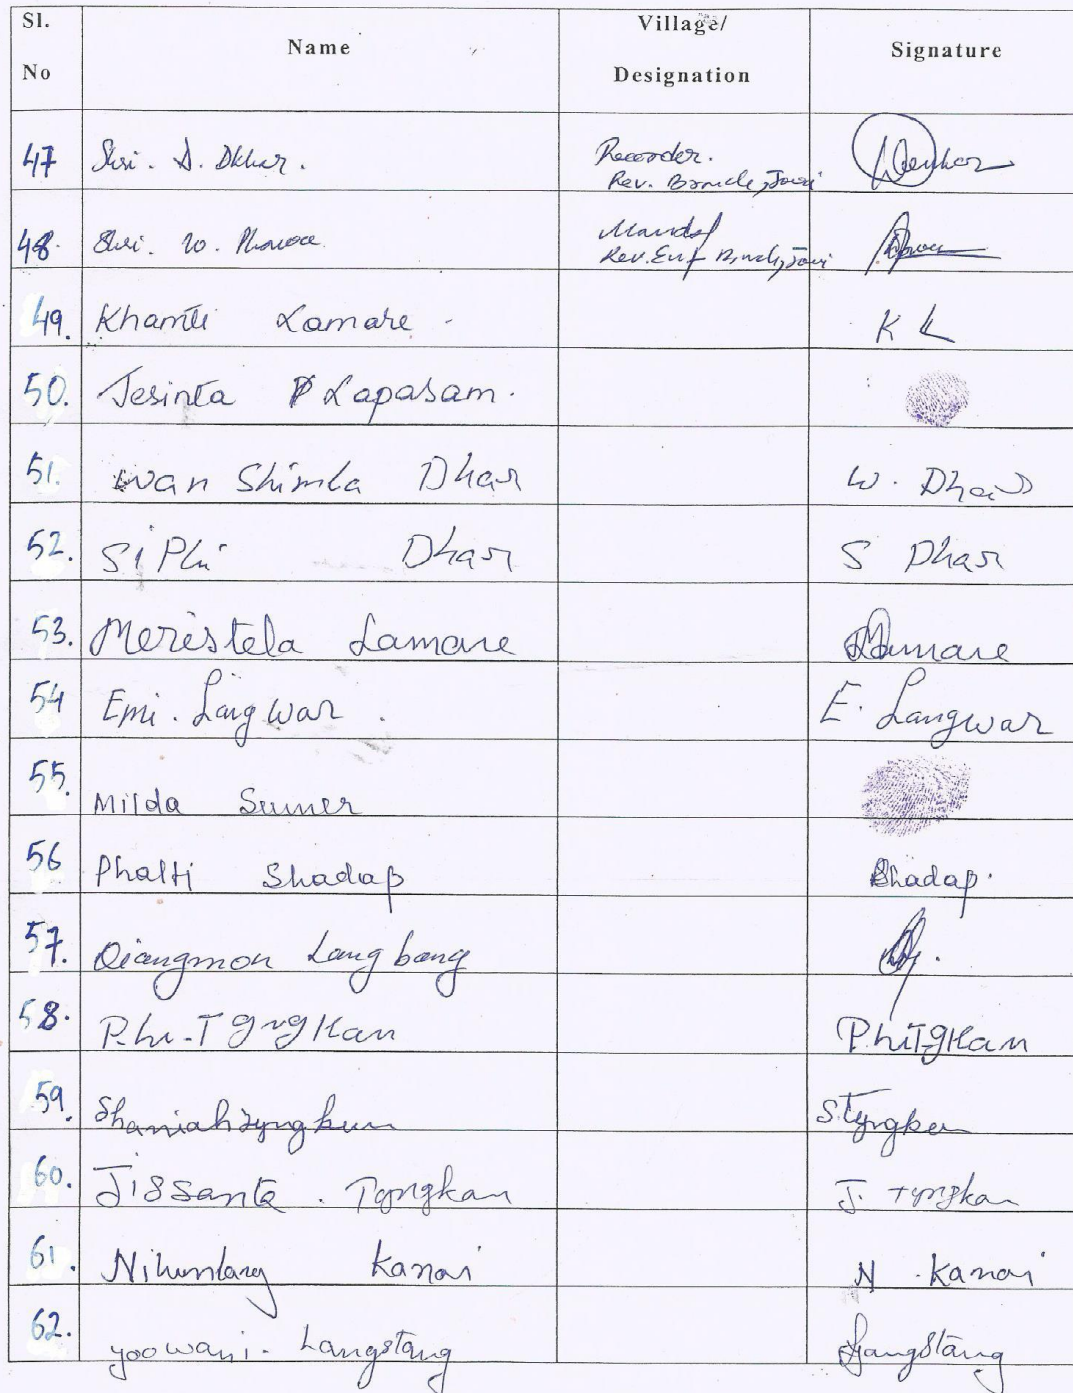 Sl. No | Name | Village/ Designation | Signature
47 | Shri. D. Dkhar. | Recorder. Rev. Branch, Jowai
48. | Shri. W. | Mandal Rev. Enf Branch, Jowai
49. | Khamti Lamare - | K L
50. | Jesinta P Lapasam.
51. | Wan Shimla Dhar | W. Dhar
52. | Si Phi Dhar | S Dhar
53. | Meristela Lamare | Lamare
54 | Emi. Langwar. | E. Langwar
55. | Milda Sumer
56 | Phalti Shadap | Shadap.
57. | Langbang
58. | Phi-Tyngkan | PhiTgkan
59. | Shaniah Syngkun
60. | Jissanta. Tyngkan | J. Tyngkan
61. | Kanai | N. Kanai
62. | yoowani. Langstang | Langstang